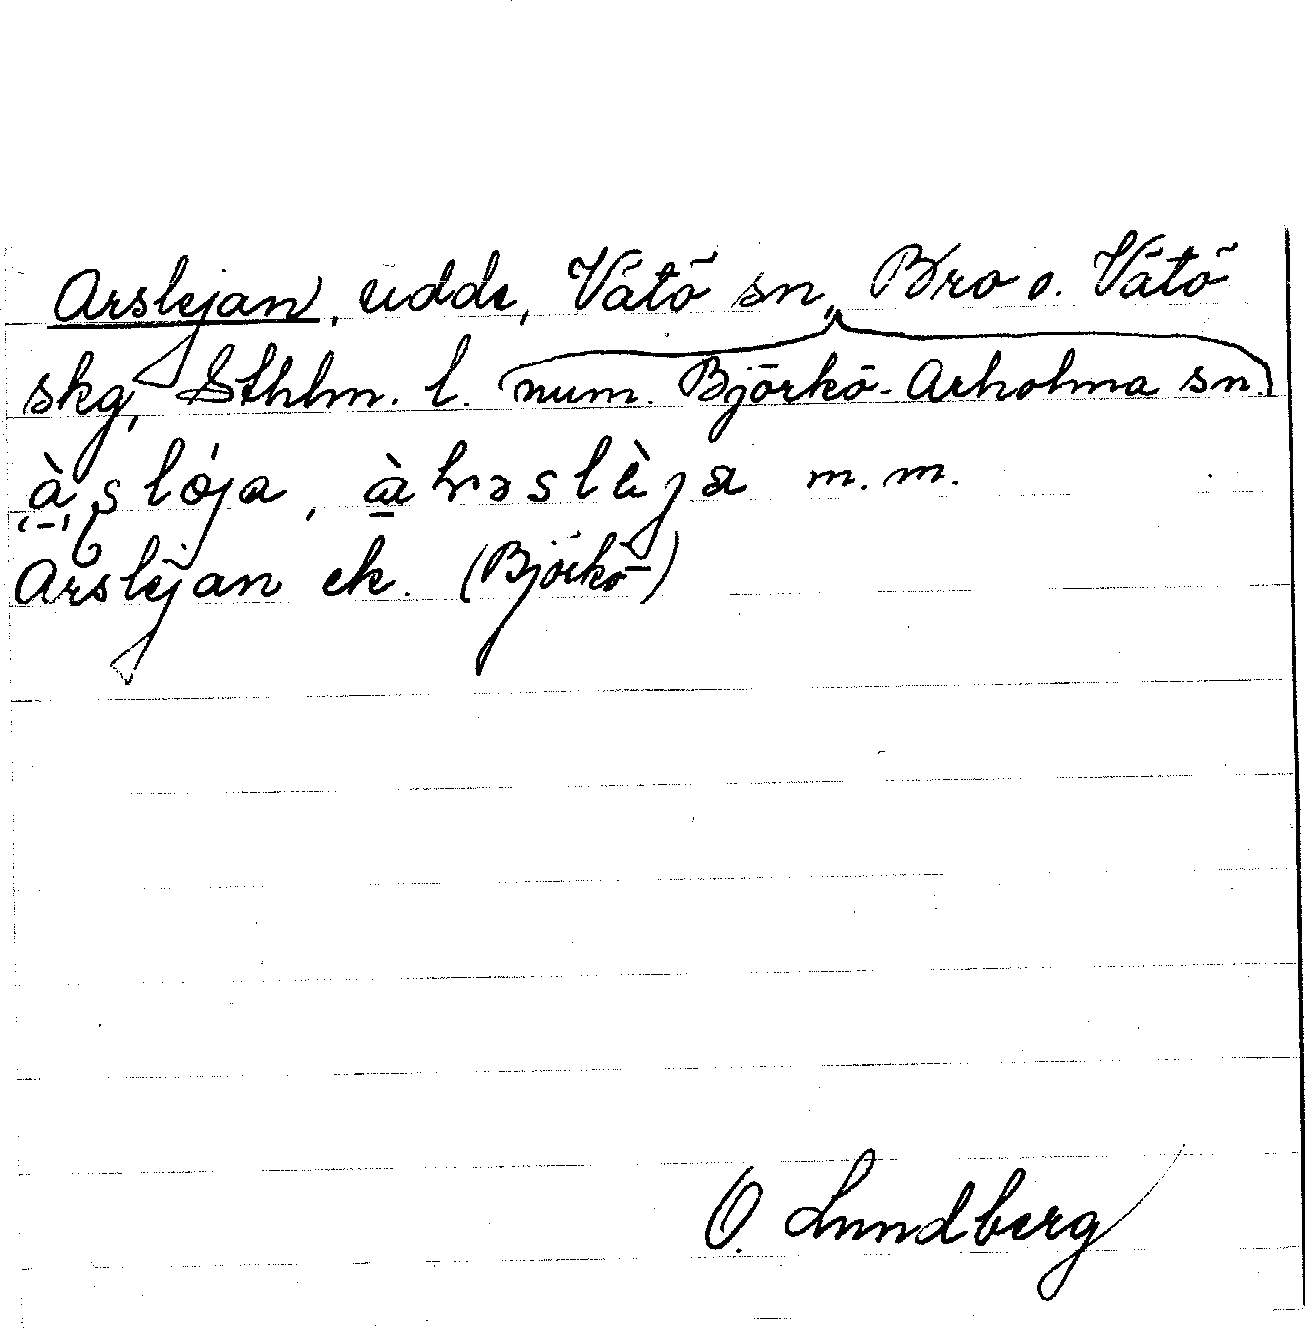 Arslejan, udde, Vätö sn, Bro o. Vätö
skg, Sthlm. l. (num. Björkö-Arholma sn.)
m.m.
Arslejan ek. (Björkö-)
O. Lundberg